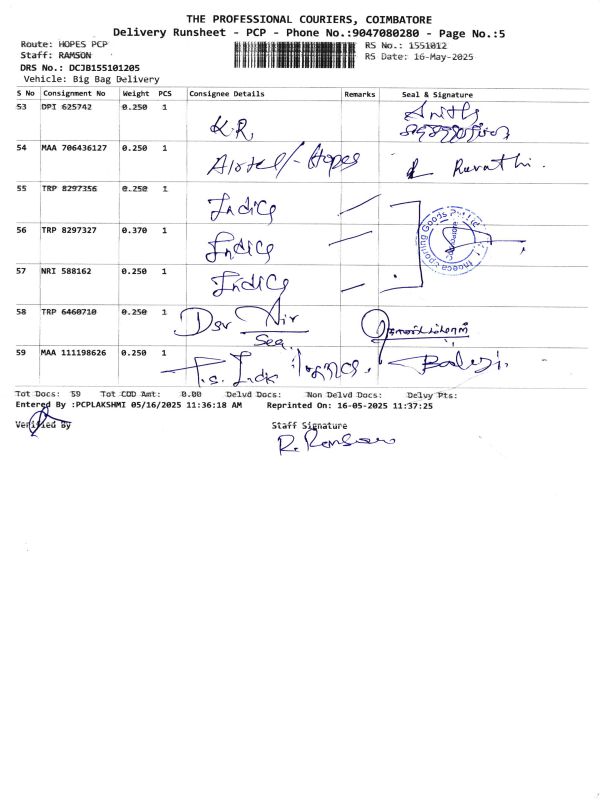 THE PROFESSIONAL COURIERS, COIMBATORE
Delivery Runsheet - PCP - Phone No.:9047080280 - Page No.:5
Route: HOPES PCP
RS No.: 1551012
Staff: RAMSON
RS Date: 16-May-2025
DRS No.: DCJB155101205
Vehicle: Big Bag Delivery
S No Consignment No Weight PCS Consignee Details Remarks Seal & Signature
53 DPI 625742 0.250 1 K.R.
54 MAA 706436127 0.250 1 Airtel/-Hopes Revathi.
55 TRP 8297356 0.250 1 Indica
56 TRP 8297327 0.370 1 Indica
57 NRI 588162 0.250 1 Indica
58 TRP 6460710 0.250 1 Dsv Air
Sea.
59 MAA 111198626 0.250 1 Balaji.
Tot Docs: 59 Tot COD Amt: 0.00 Delvd Docs: Non Delvd Docs: Delvy Pts:
Entered By :PCPLAKSHMI 05/16/2025 11:36:18 AM Reprinted On: 16-05-2025 11:37:25
Verified By Staff Signature
R. Ramson